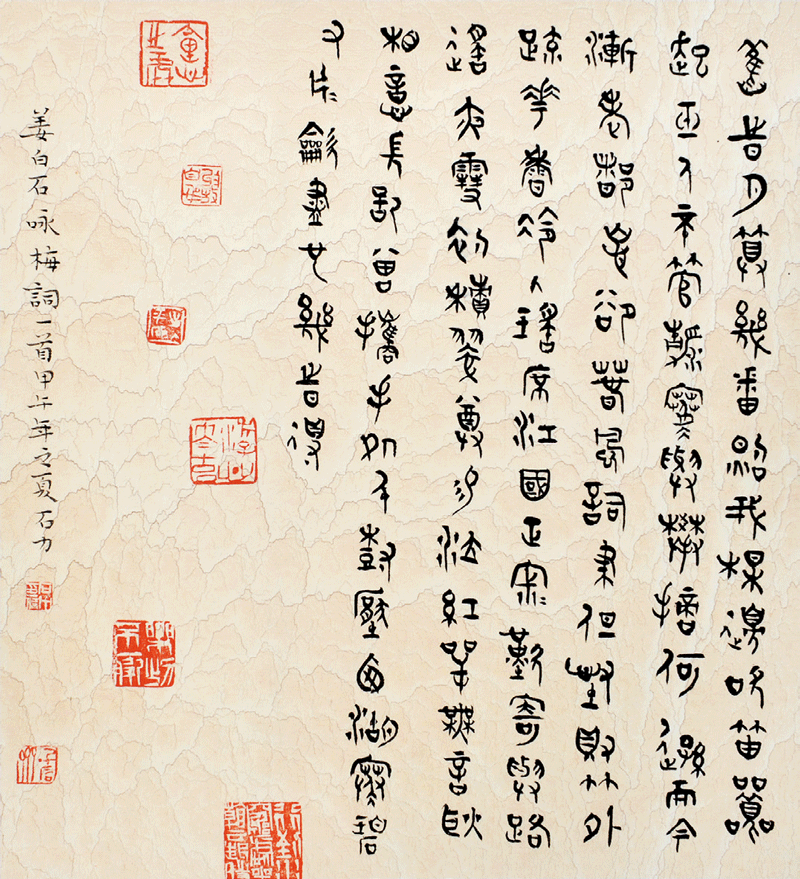 舊時月算幾番照我楳邊吹笛喚
起玉人不管清寒與攀摘何遜而今
漸老都忘卻春風詞筆但怪得竹外
疏花香冷入瑤席江國正寂〻歎寄與路
遙夜雪初積翠尊易泣紅萼無言耿
相憶長記曾攜手処千樹壓西湖寒碧
又片〻龡盡也幾時得
姜白石咏梅詞一首甲午年之夏石力